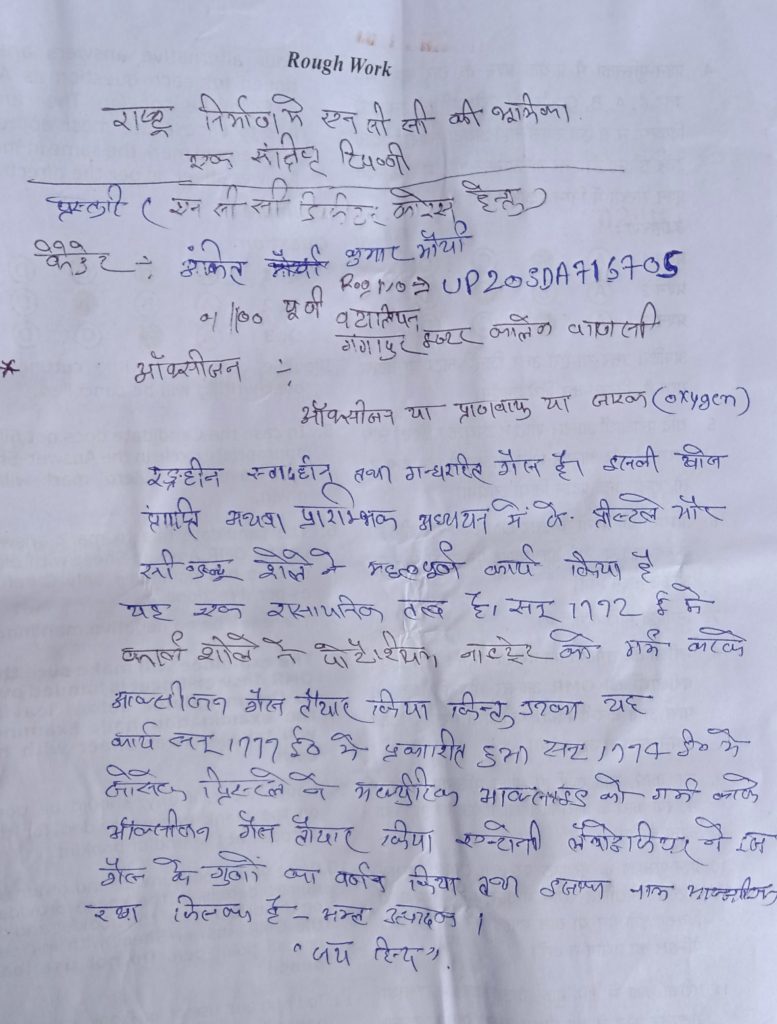 Rough Work
राष्ट्र निर्माण मे एन सी सी की भूमिका
एक संक्षिप्त टिप्पणी
(एन सी सी कोर्स हेतु)
कैडेट :- अंकित कुमार मौर्या
Reg no → UP20SDA715705
पूर्वी
गंगापुर इण्टर कालेज वाराणसी
* ऑक्सीजन :-
ऑक्सीजन या प्राणवायु या जारक (oxygen)
रङ्गहीन स्वादहीन तथा गन्धरहित गैस है। इसकी खोज
अथवा प्रारम्भिक अध्ययन में जे. प्रीस्टले और
सी डब्लू शेले ने महत्वपूर्ण कार्य किया है
यह एक रासायनिक तत्व है। सन् 1772 ई मे
कार्ल शीले ने पोटैशियम नाइट्रेट को गर्म करके
आक्सीजन गैस तैयार किया किन्तु उनका यह
कार्य सन् 1777 ई० मे प्रकाशित हुआ सन् 1774 ई० मे
जोसेफ प्रिस्टले ने मरक्युरिक आक्साइड को गर्म करके
ऑक्सीजन गैस तैयार किया एन्टोनी ने इस
गैस के गुणों का वर्णन किया तथा इसका नाम आक्सीजन
रखा जिसका है - अम्ल उत्पादक।
"जय हिन्द".